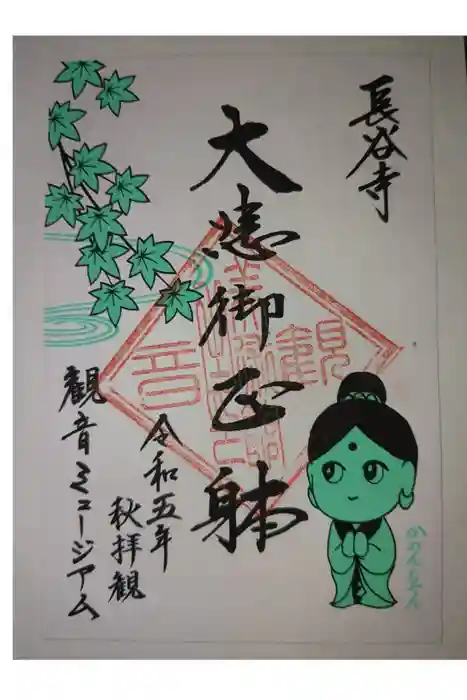 長谷寺
大悲御正躰
令和五年
秋拝観
観音ミュージアム
かのんちゃん
観
音